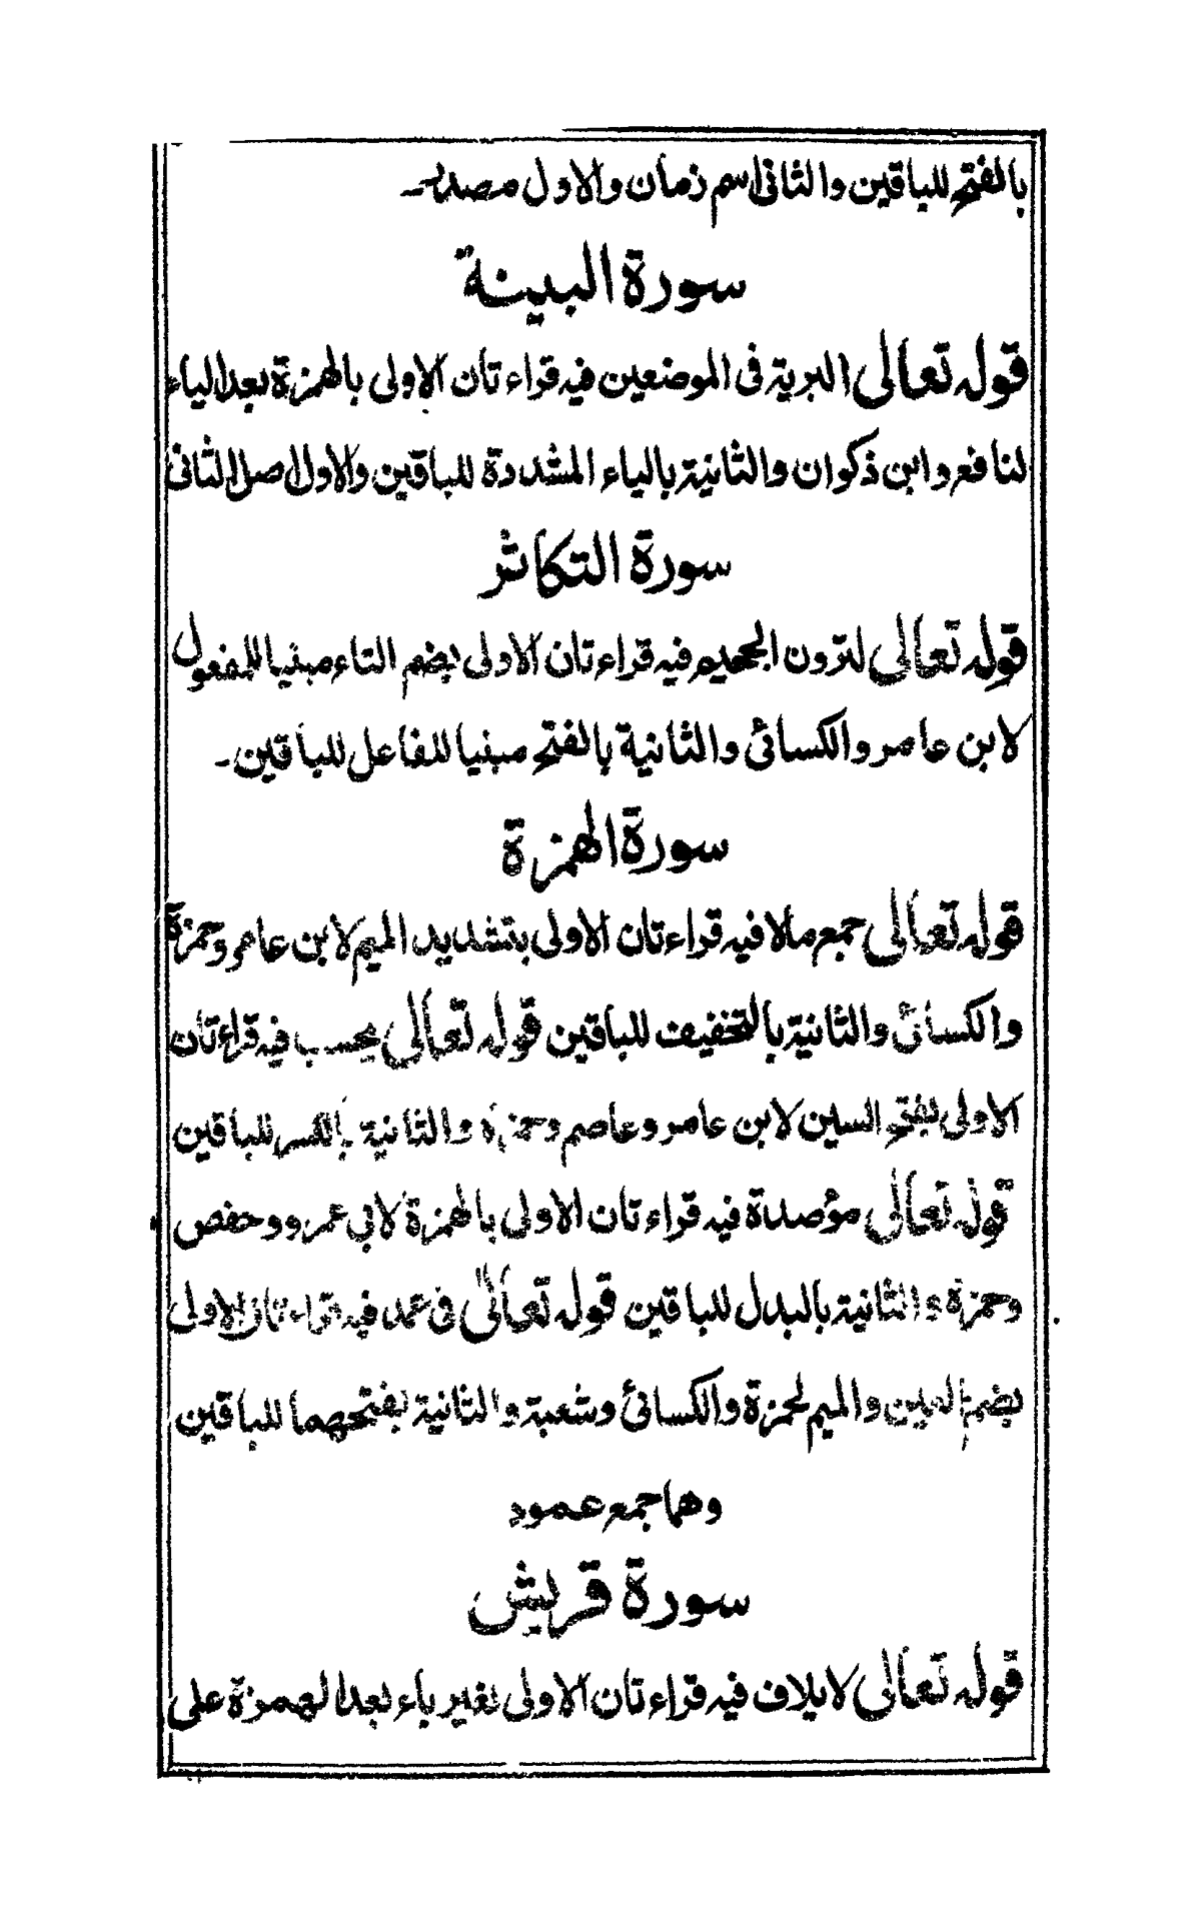 بالفتح للباقين والثانى اسم زمان والاول مصدر ـ
سورة البينة
قوله تعالى البرية فى الموضعين فيه قراءتان الاولى بالهمزة بعد الياء
لنافع وابن ذكوان والثانية بالياء المشددة للباقين والاول اصل الثانى
سورة التكاثر
قوله تعالى لترون الجحيم فيه قراءتان الاولى بضم التاء مبنيا للمفعول
لابن عامر والكسائى والثانية بالفتح مبنيا للفاعل للباقين ـ
سورة الهمزة
قوله تعالى جمع مالا فيه قراءتان الاولى بتشديد الميم لابن عامر وحمزة
والكسائى والثانية بالتخفيف للباقين قوله تعالى يحسب فيه قراءتان
الاولى بفتح السين لابن عامر وعاصم وحمزة والثانية بالكسر للباقين
قوله تعالى مؤصدة فيه قراءتان الاولى بالهمزة لابي عمرو وحفص
وحمزة والثانية بالبدل للباقين قوله تعالى فى عمد فيه قراءتان الاولى
بضم العين والميم لحمزة والكسائى وشعبة والثانية بفتحهما للباقين
وهما جمع عمود
سورة قريش
قوله تعالى لايلاف فيه قراءتان الاولى بغير ياء بعد الهمزة على